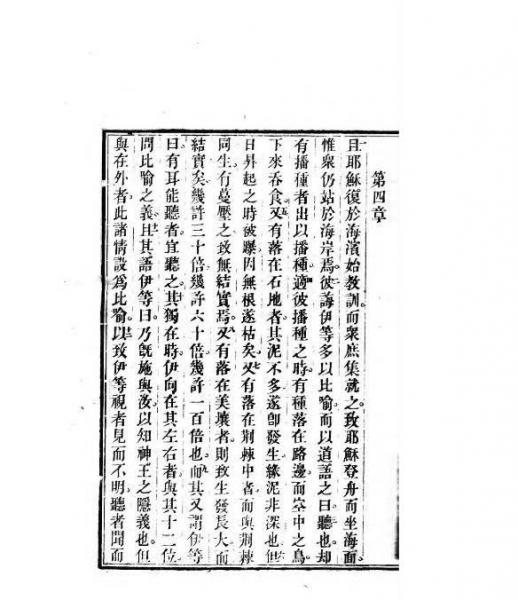 第四章
且耶穌復於海濱始教訓而衆庶集就之致耶穌登舟而坐海面
惟衆仍站於海岸焉彼誨伊等多以比喻而以道語之曰聽也却
有播種者出以播種適彼播種之時有種落在路邊而空中之鳥
下來吞食又有落在石地者其泥不多遂卽發生緣泥非深也但
日昇起之時彼曝因無根遂枯矣又有落在荊棘中者而與荊棘
同生有蔓壓之致無結實焉又有落在美壤者則致生發長大而
結實矣幾許三十倍幾許六十倍幾許一百倍也而其又謂伊等
曰有耳能聽者宜聽之其獨在時伊向在其左右者與其十二位
問比喻之義且其語伊等曰乃旣施與汝以知神王之隱義也但
與在外者此諸情設爲比喻以致伊等視者見而不明聽者聞而